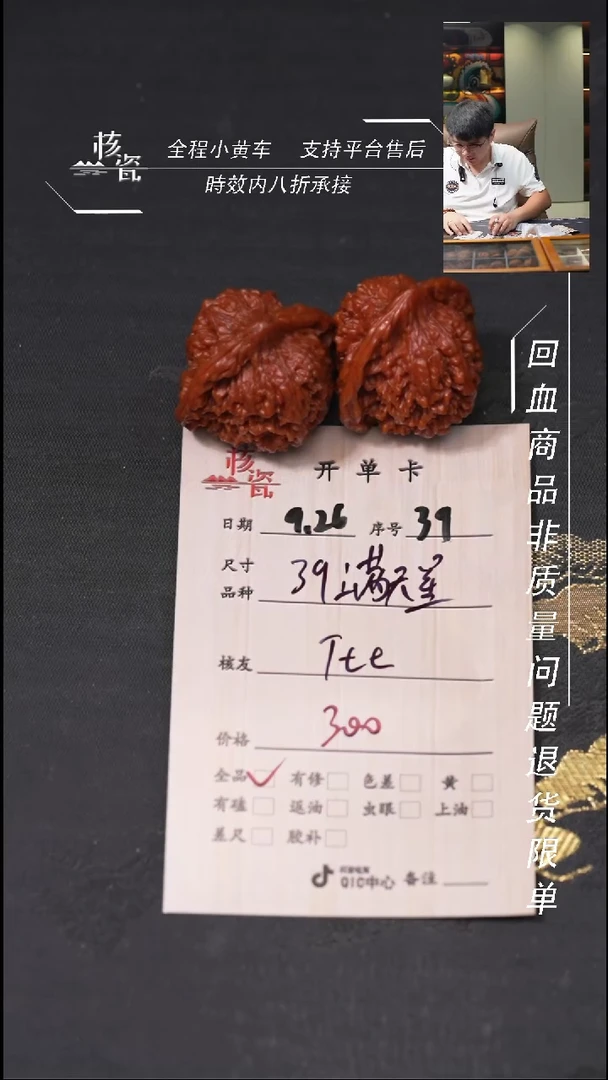 核瓷
全程小黄车 支持平台售后
時效内八折承接
回血商品非质量问题退货限单
核瓷
开单卡
日期 9.26 序号 39
尺寸
品种 39满天星
核友 Tte
价格 300
全品 有修 色差 黄
有磕 返油 虫眼 上油
差尺 胶补
QIC中心 备注